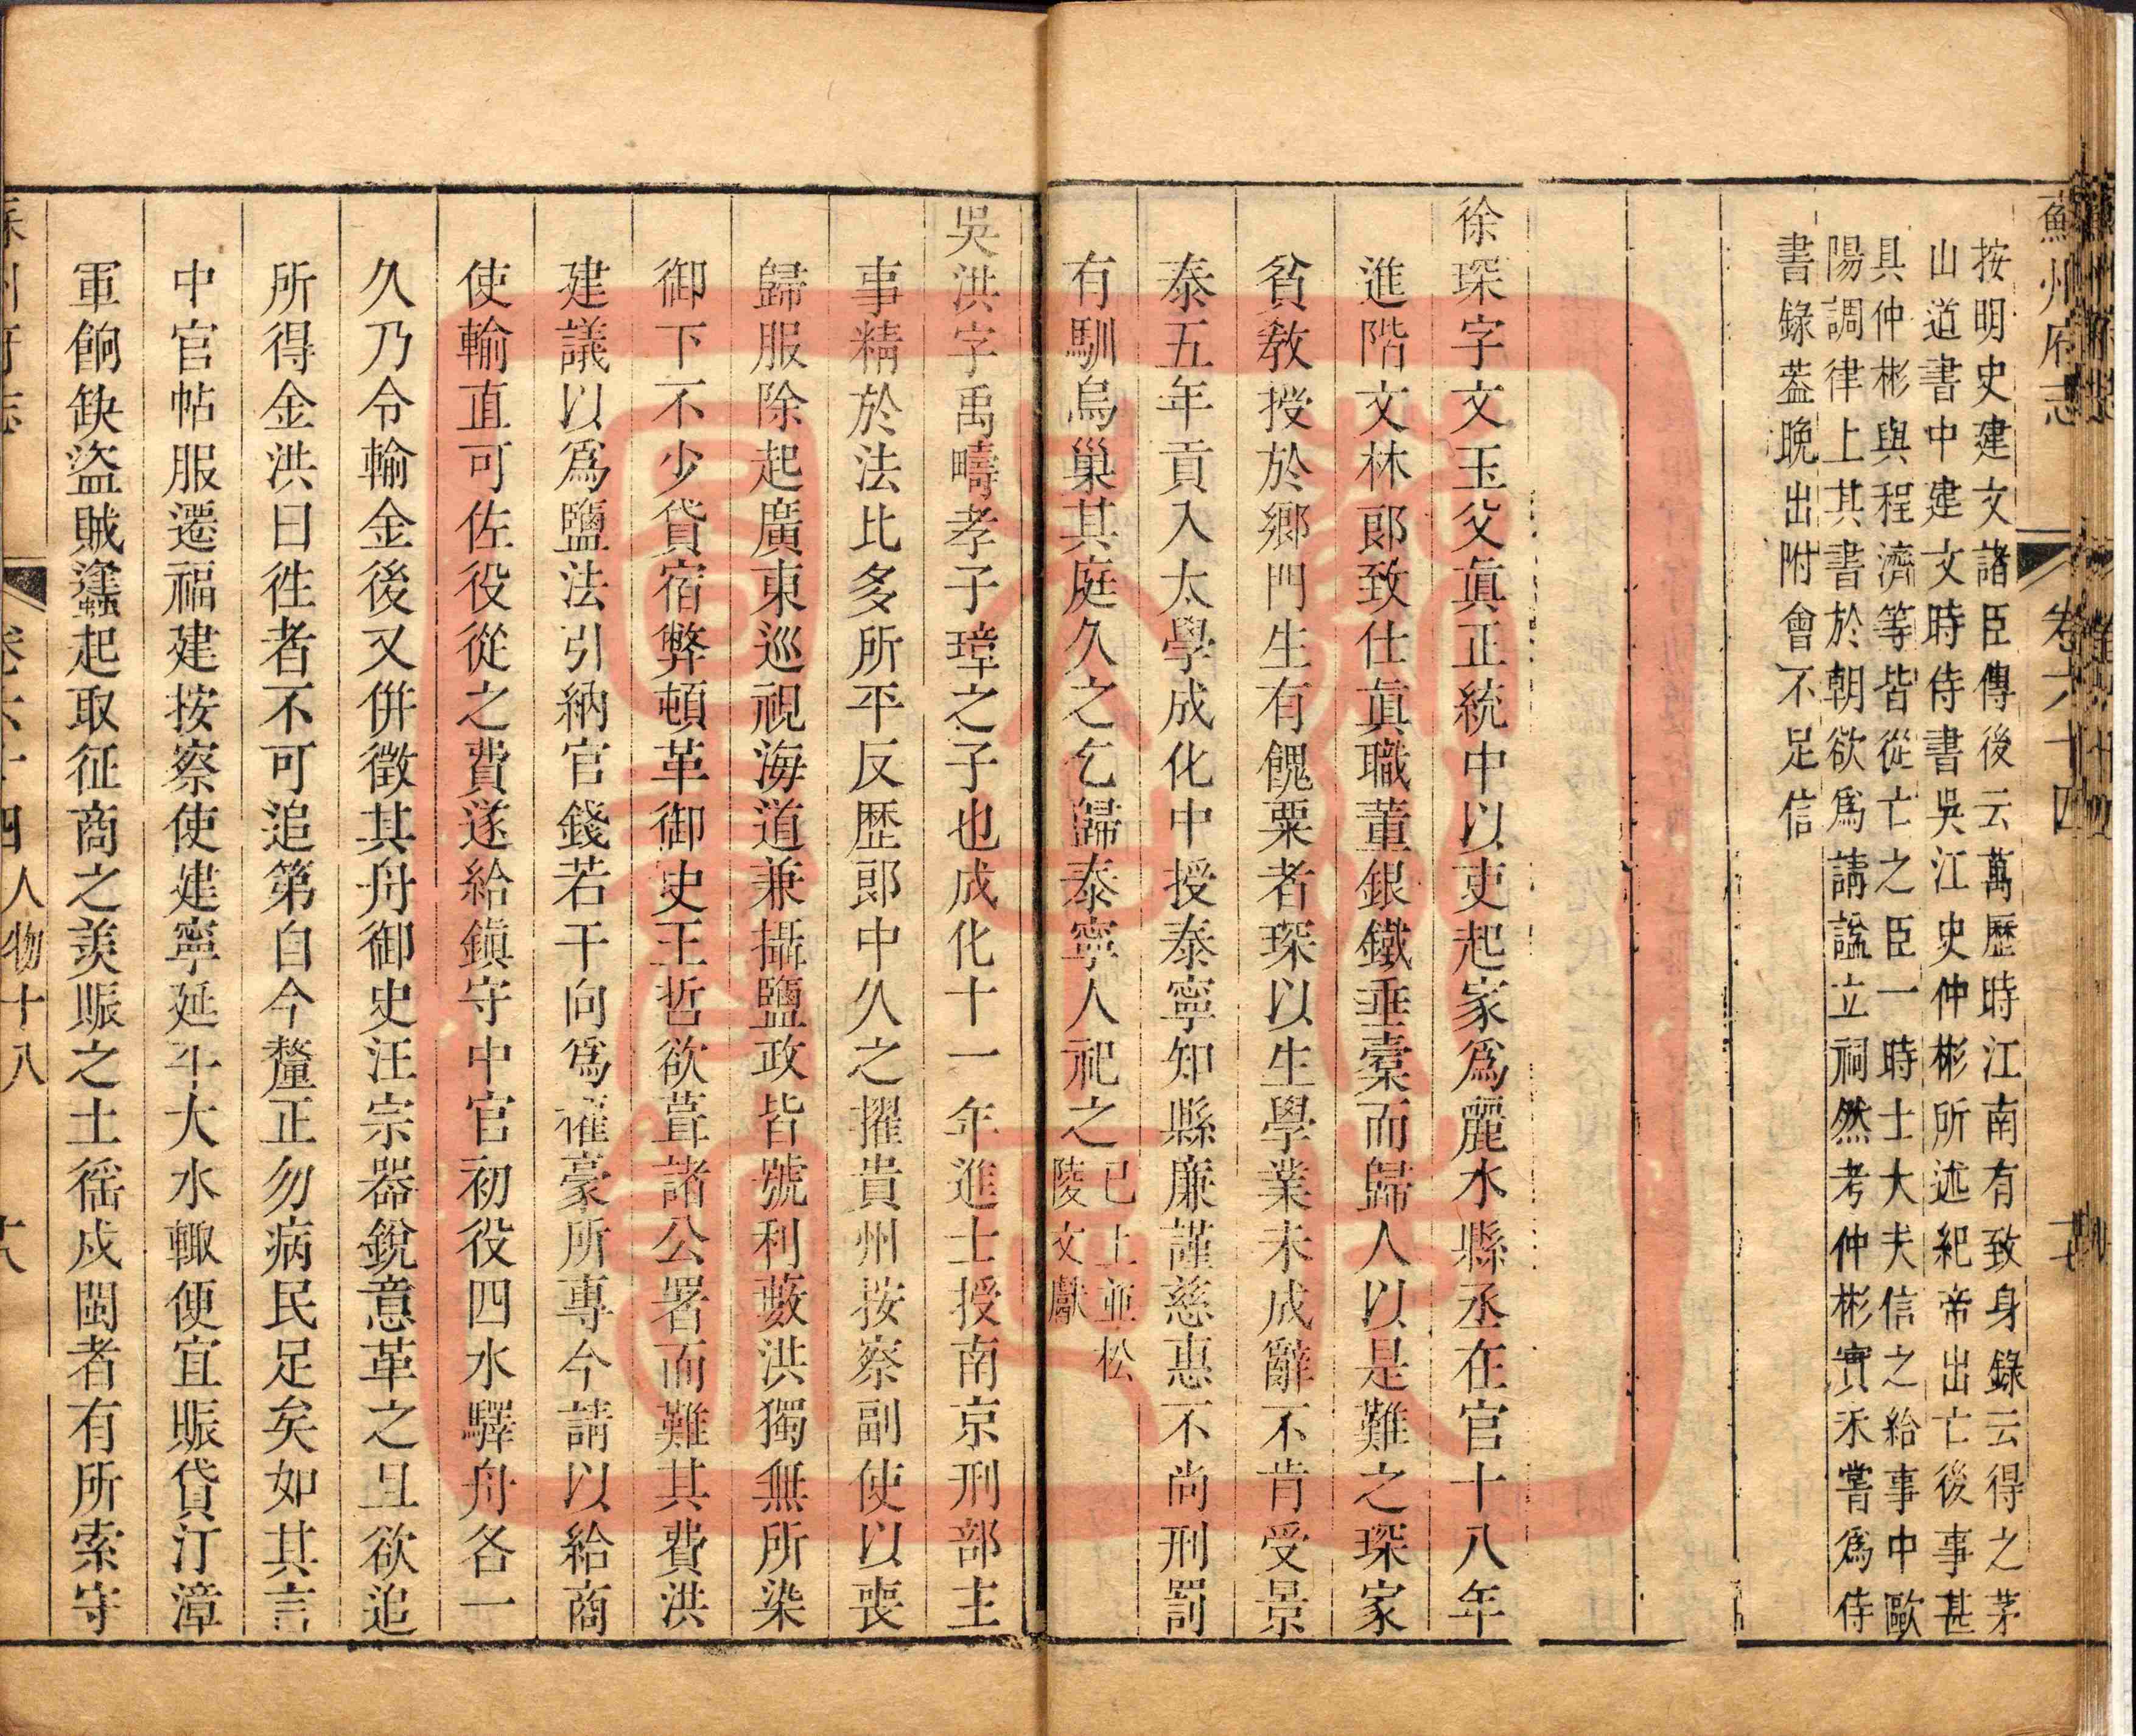 蘇州府志
卷六十四
按明史建文諸臣傳後云萬歷時江南有致身錄云得之茅
山道書中建文時侍書吳江史仲彬所述紀帝出亡後事甚
具仲彬與程濟等皆從亡之臣一時士大夫信之給事中歐
陽調律上其書於朝欲爲請諡立祠然考仲彬實未嘗爲侍
書錄葢晚出附會不足信
徐琛字文玉父眞正統中以吏起家爲麗水縣丞在官十八年
進階文林郞致仕眞職董銀鐵垂橐而歸人以是難之琛家
貧教授於鄉門生有餽粟者琛以生學業未成辭不肯受景
泰五年貢入太學成化中授泰寧知縣廉謹慈惠不尚刑罰
有馴烏巢其庭久之乞歸泰寧人祀之已上並松
陵文獻
吳洪字禹疇孝子璋之子也成化十一年進士授南京刑部主
事精於法比多所平反歷郞中久之擢貴州按察副使以喪
歸服除起廣東巡視海道兼攝鹽政皆號利藪洪獨無所染
御下不少貸宿弊頓革御史王哲欲葺諸公署而難其費洪
建議以爲鹽法引納官錢若干向爲權豪所專今請以給商
使輸直可佐役從之費遂給鎭守中官初役四水驛舟各一
久乃令輸金後又併徵其舟御史汪宗器銳意革之且欲追
所得金洪曰徃者不可追第自今釐正勿病民足矣如其言
中官帖服遷福建按察使建寧延平大水輙便宜賑貸汀漳
軍餉缺盜賊蠭起取征商之羨賑之土徭戍閩者有所索守
卷六十四 人物十八